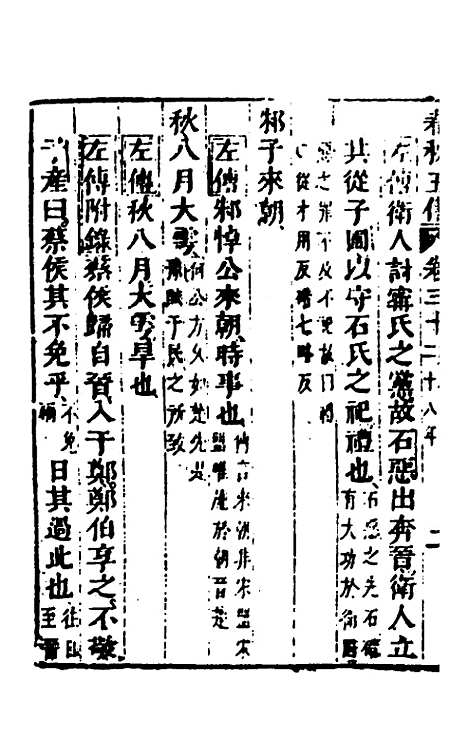 春秋五傳 卷三十二 十八年 二
左傳衛人討甯氏之黨故石惡出奔晉衛人立
其從子圃以守石氏之祀禮也 石惡之先石碏有大功於衛
惡之罪不及不祀故曰禮
從才用反碏七略反
邾子來朝
左傳邾悼公來朝時事也 傳言來朝非宋盟宋盟唯施於朝晉楚
秋八月大雩 何公方久如楚先是豫賦于民之所致
左傳秋八月大雩旱也
左傳附錄蔡侯歸自晉入于鄭鄭伯享之不敬
子産曰蔡侯其不免乎 不免禍 日其過此也 往日至晉